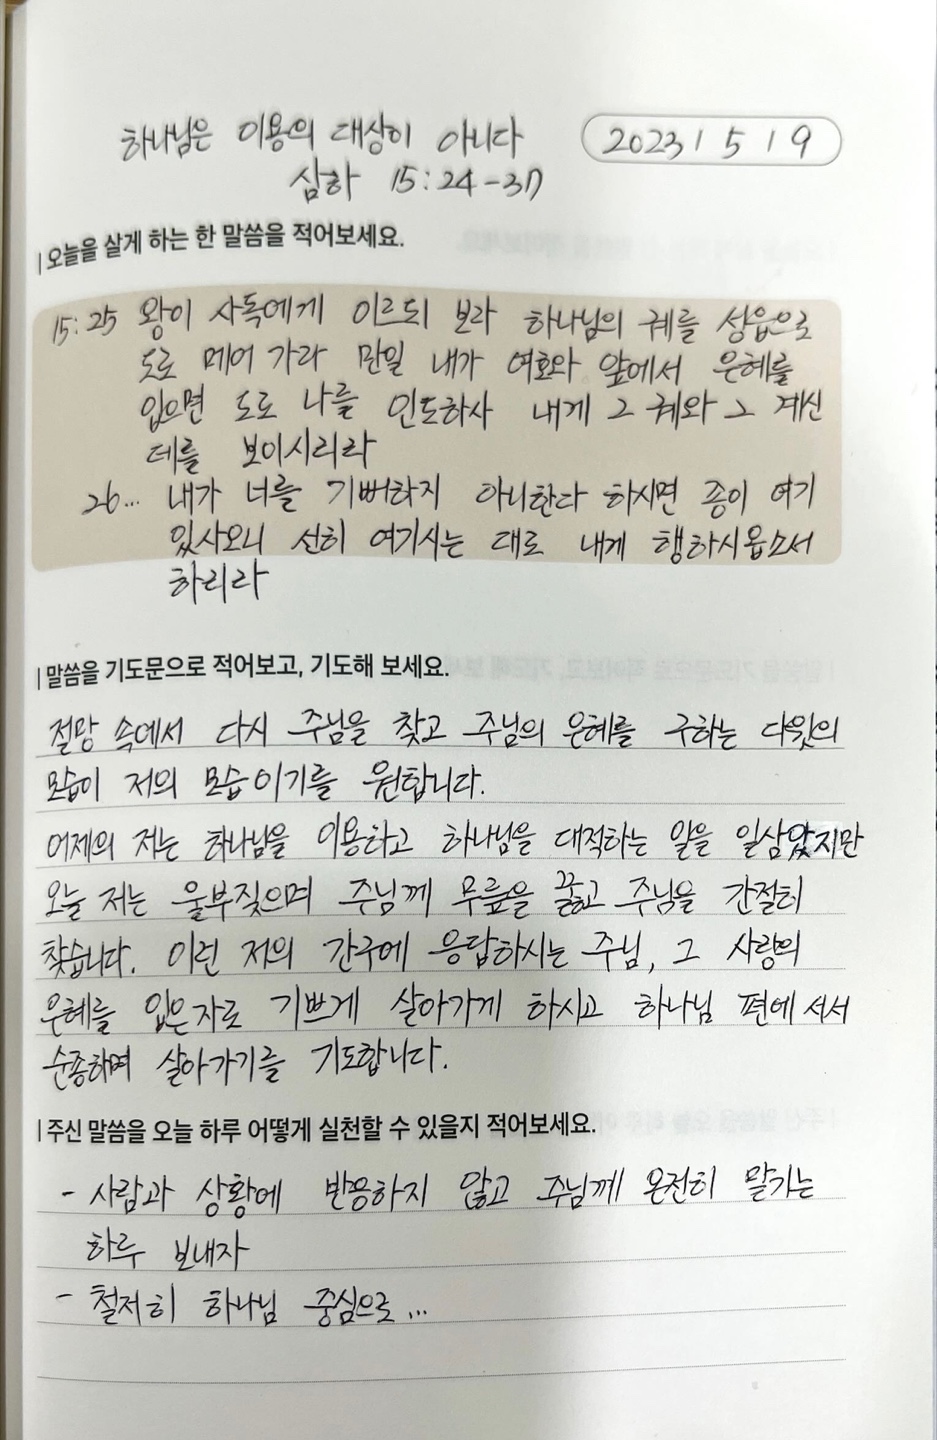 하나님은 이용의 대상이 아니다
2023 / 5 / 19
삼하 15:24-37
오늘을 살게 하는 한 말씀을 적어보세요.
15:25 왕이 사독에게 이르되 보라 하나님의 궤를 성읍으로
도로 메어 가라 만일 내가 여호와 앞에서 은혜를
입으면 도로 나를 인도하사 내게 그 궤와 그 계신
데를 보이시리라
26... 내가 너를 기뻐하지 아니한다 하시면 종이 여기
있사오니 선히 여기시는 대로 내게 행하시옵소서
하리라
말씀을 기도문으로 적어보고, 기도해 보세요.
절망 속에서 다시 주님을 찾고 주님의 은혜를 구하는 다윗의
모습이 저의 모습이기를 원합니다.
어제의 저는 하나님을 이용하고 하나님을 대적하는 일을 일삼았지만
오늘 저는 울부짖으며 주님께 무릎을 꿇고 주님을 간절히
찾습니다. 이런 저의 간구에 응답하시는 주님, 그 사랑의
은혜를 입은 자로 기쁘게 살아가게 하시고 하나님 편에 서서
순종하며 살아가기를 기도합니다.
주신 말씀을 오늘 하루 어떻게 실천할 수 있을지 적어보세요.
- 사람과 상황에 반응하지 않고 주님께 온전히 맡기는
하루 보내자
- 철저히 하나님 중심으로...